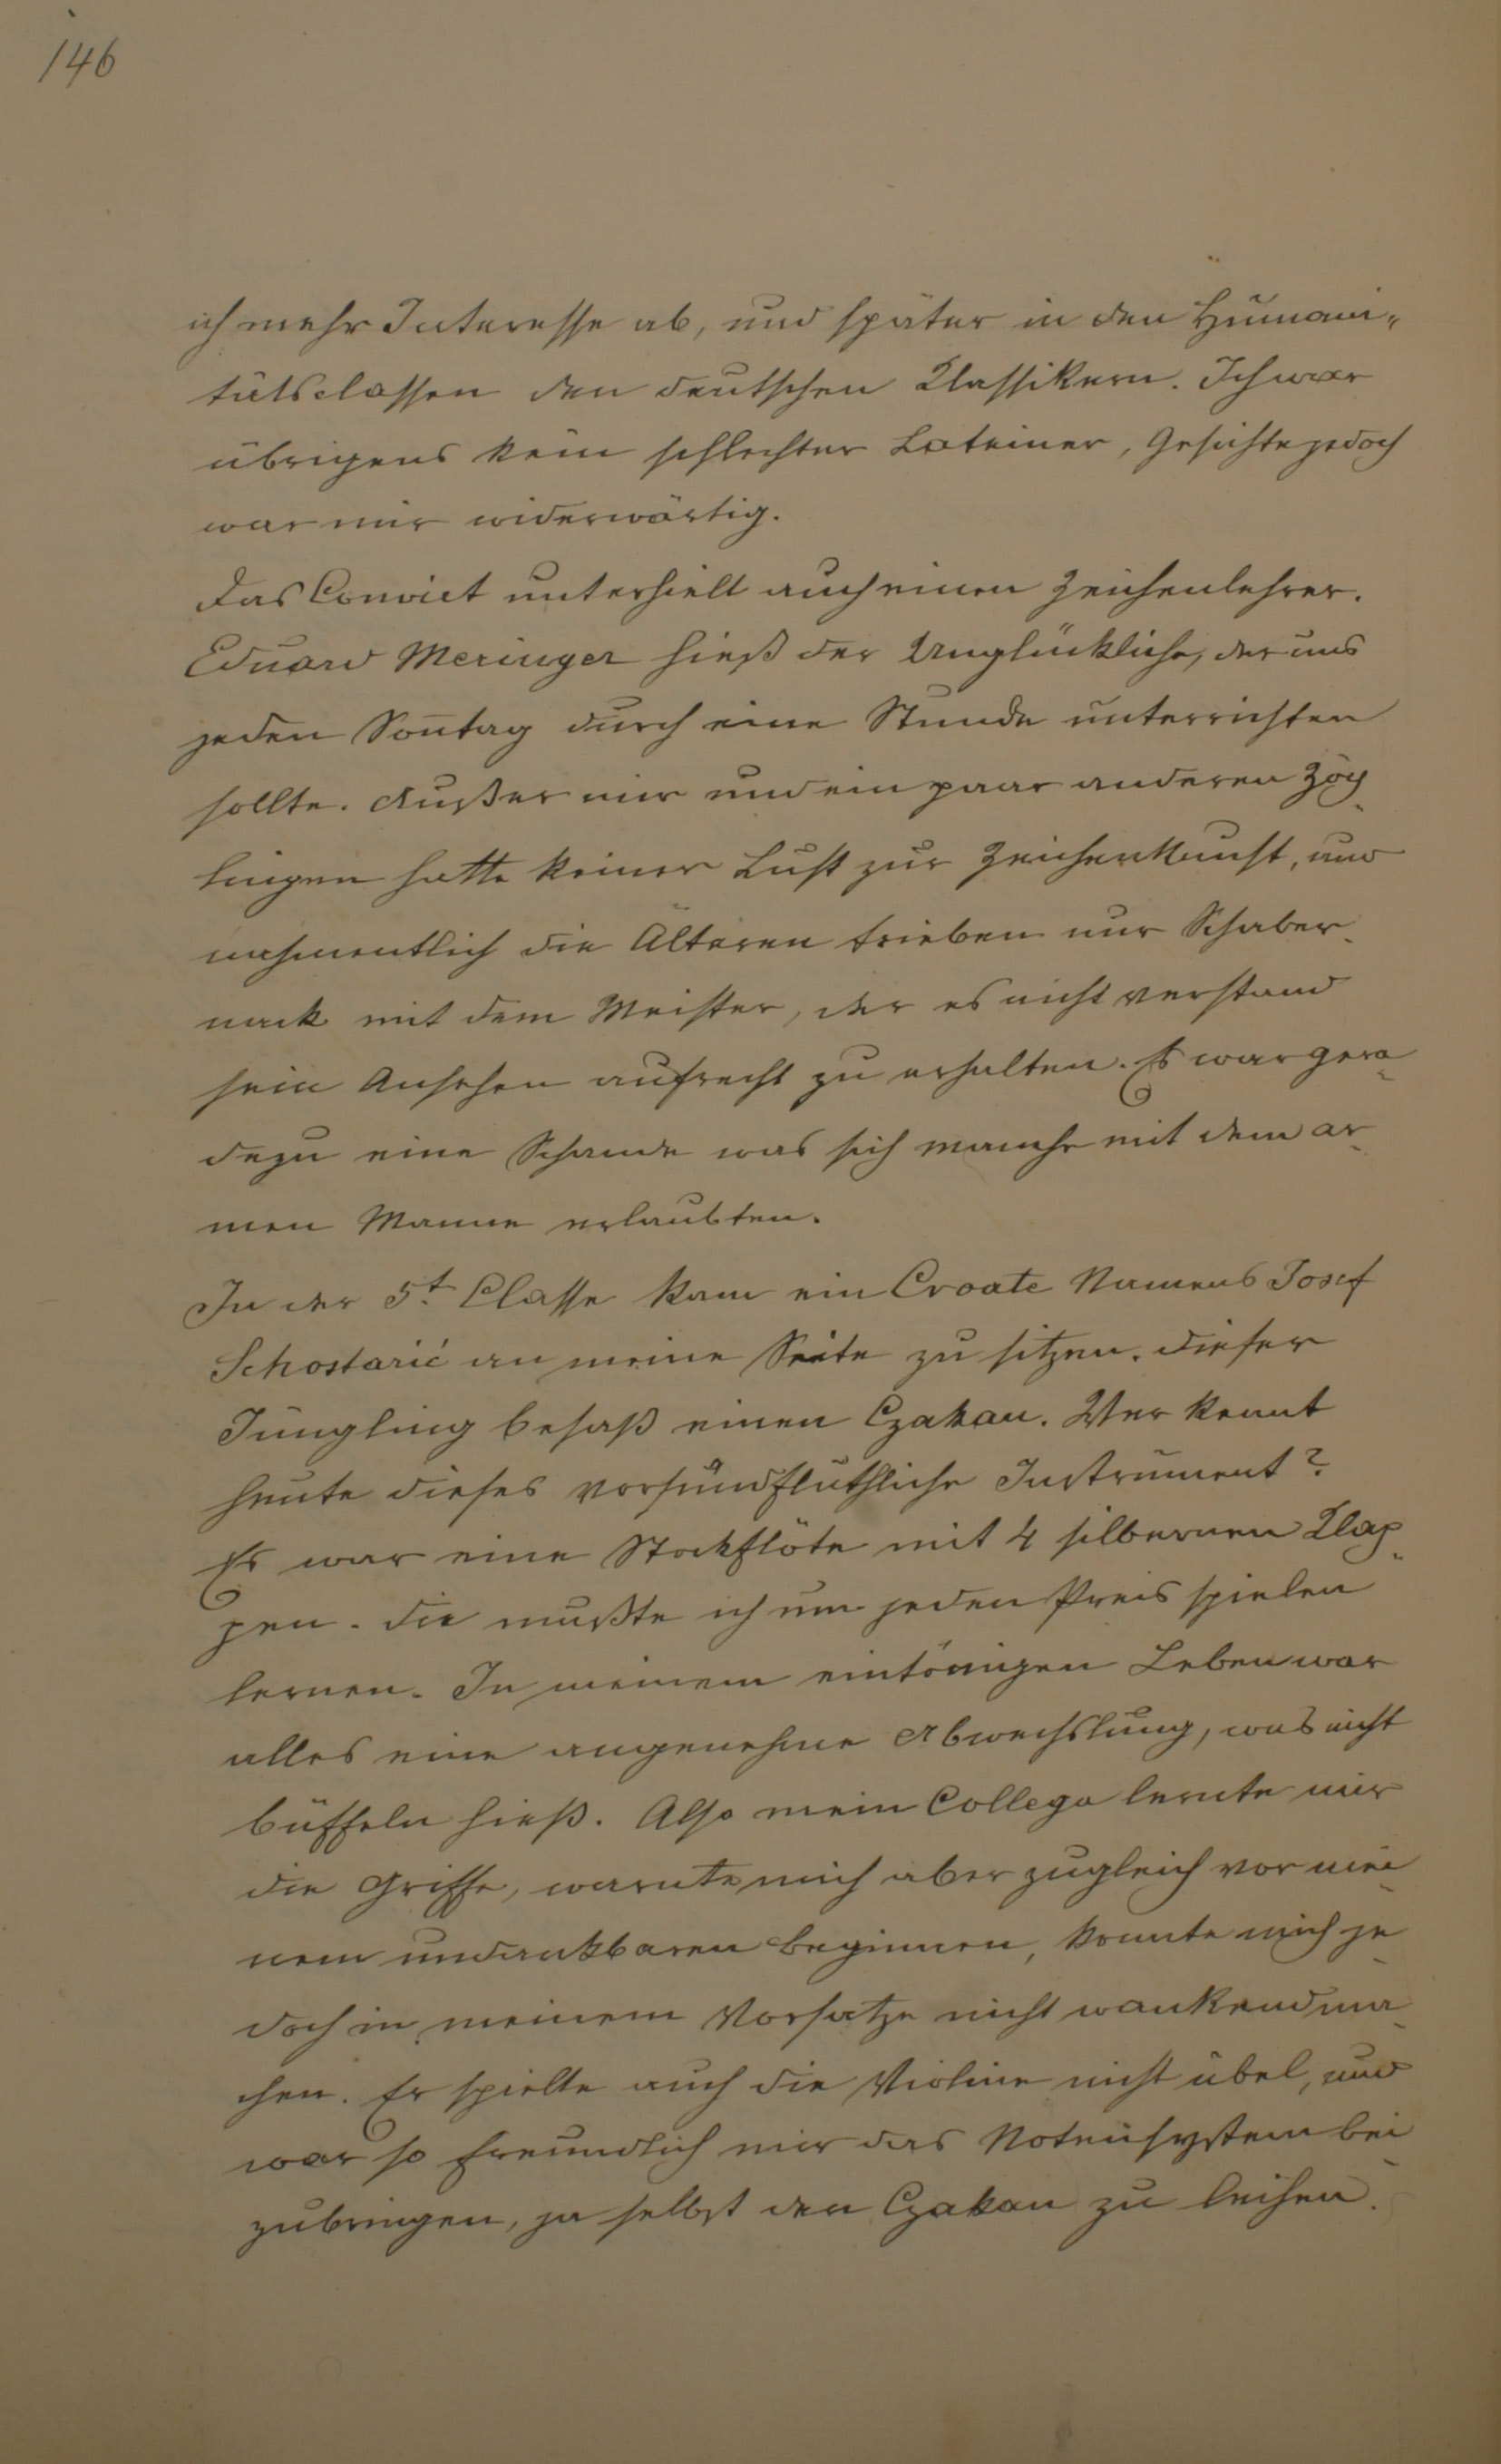 146
ich mehr Interesse ab, und später in den Humani-
tätsclassen den deutschen Klassikern. Ich war
übrigens kein schlechter Lateiner, Gesichte jedoch
war mir widerwärtig.
Das Convict unterhielt auch einen Zeichenlehrer.
Eduard Meringer hieß der Unglückliche, der uns
jeden Soñtag durch eine Stunde unterrichten
sollte. Außer mir und ein paar anderen Zög-
lingen hatte keiner Lust zur Zeichenkunst, und
nahmentlich die Älteren trieben nur Schaber-
nack mit dem Meister, der es nicht verstand
sein Ansehen aufrecht zu erhalten. Es war gera-
dezu eine Schande was sich manche mit dem ar-
men Manne erlaubten.
In der 5t. Classe kam ein Croate Namens Josef
Schostarić an meine Seite zu sitzen. Dieser
Jüngling besaß einen Czakan. Wer kennt
heute dieses vorsündfluthliche Instrument?
Es war eine Stockflöte mit 4 silbernen Klap-
pen. Die mußte ich um jeden Preis spielen
lernen. In meinem eintönigen Leben war
alles eine angenehme Abwechslung, was nicht
büffeln hieß. Also mein Collega lernte mir
die Griffe, warnte mich aber zugleich vor mei-
nem undankbaren Beginnen, konnte mich je-
doch in meinem Vorsatze nicht wankend ma-
chen. Er spielte auch die Violine nicht übel, und
war so freundlich mir das Notensystem bei-
zubringen, ja selbst den Czakan zu leihen.